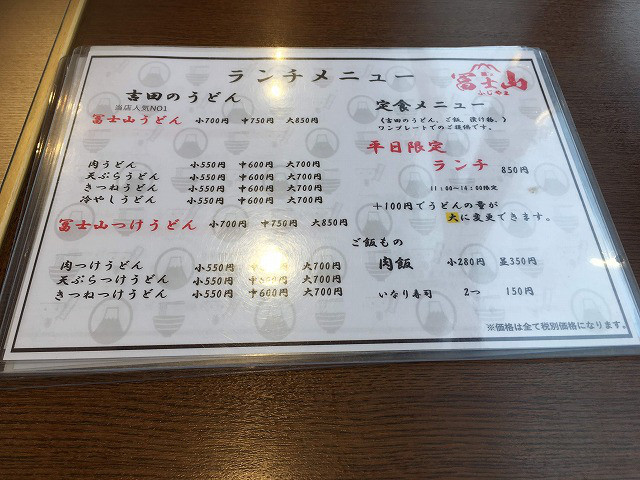 ランチメニュー
冨士山
ふじやま
吉田のうどん
当店人気NO1
冨士山うどん 小700円 中750円 大850円
肉うどん 小550円 中600円 大700円
天ぷらうどん 小550円 中600円 大700円
きつねうどん 小550円 中600円 大700円
冷やしうどん 小550円 中600円 大700円
冨士山つけうどん 小700円 中750円 大850円
肉つけうどん 小550円 大700円
天ぷらつけうどん 小550円 大700円
きつねつけうどん 小550円 中600円 大700円
定食メニュー
(吉田のうどん、ご飯、漬け物、)
ワンプレートでのご提供です。
平日限定
ランチ 850円
11:00〜14:00限定
+100円でうどんの量が
大に変更できます。
ご飯もの
肉飯 小280円 並350円
いなり寿司 2つ 150円
※価格は全て税別価格になります。